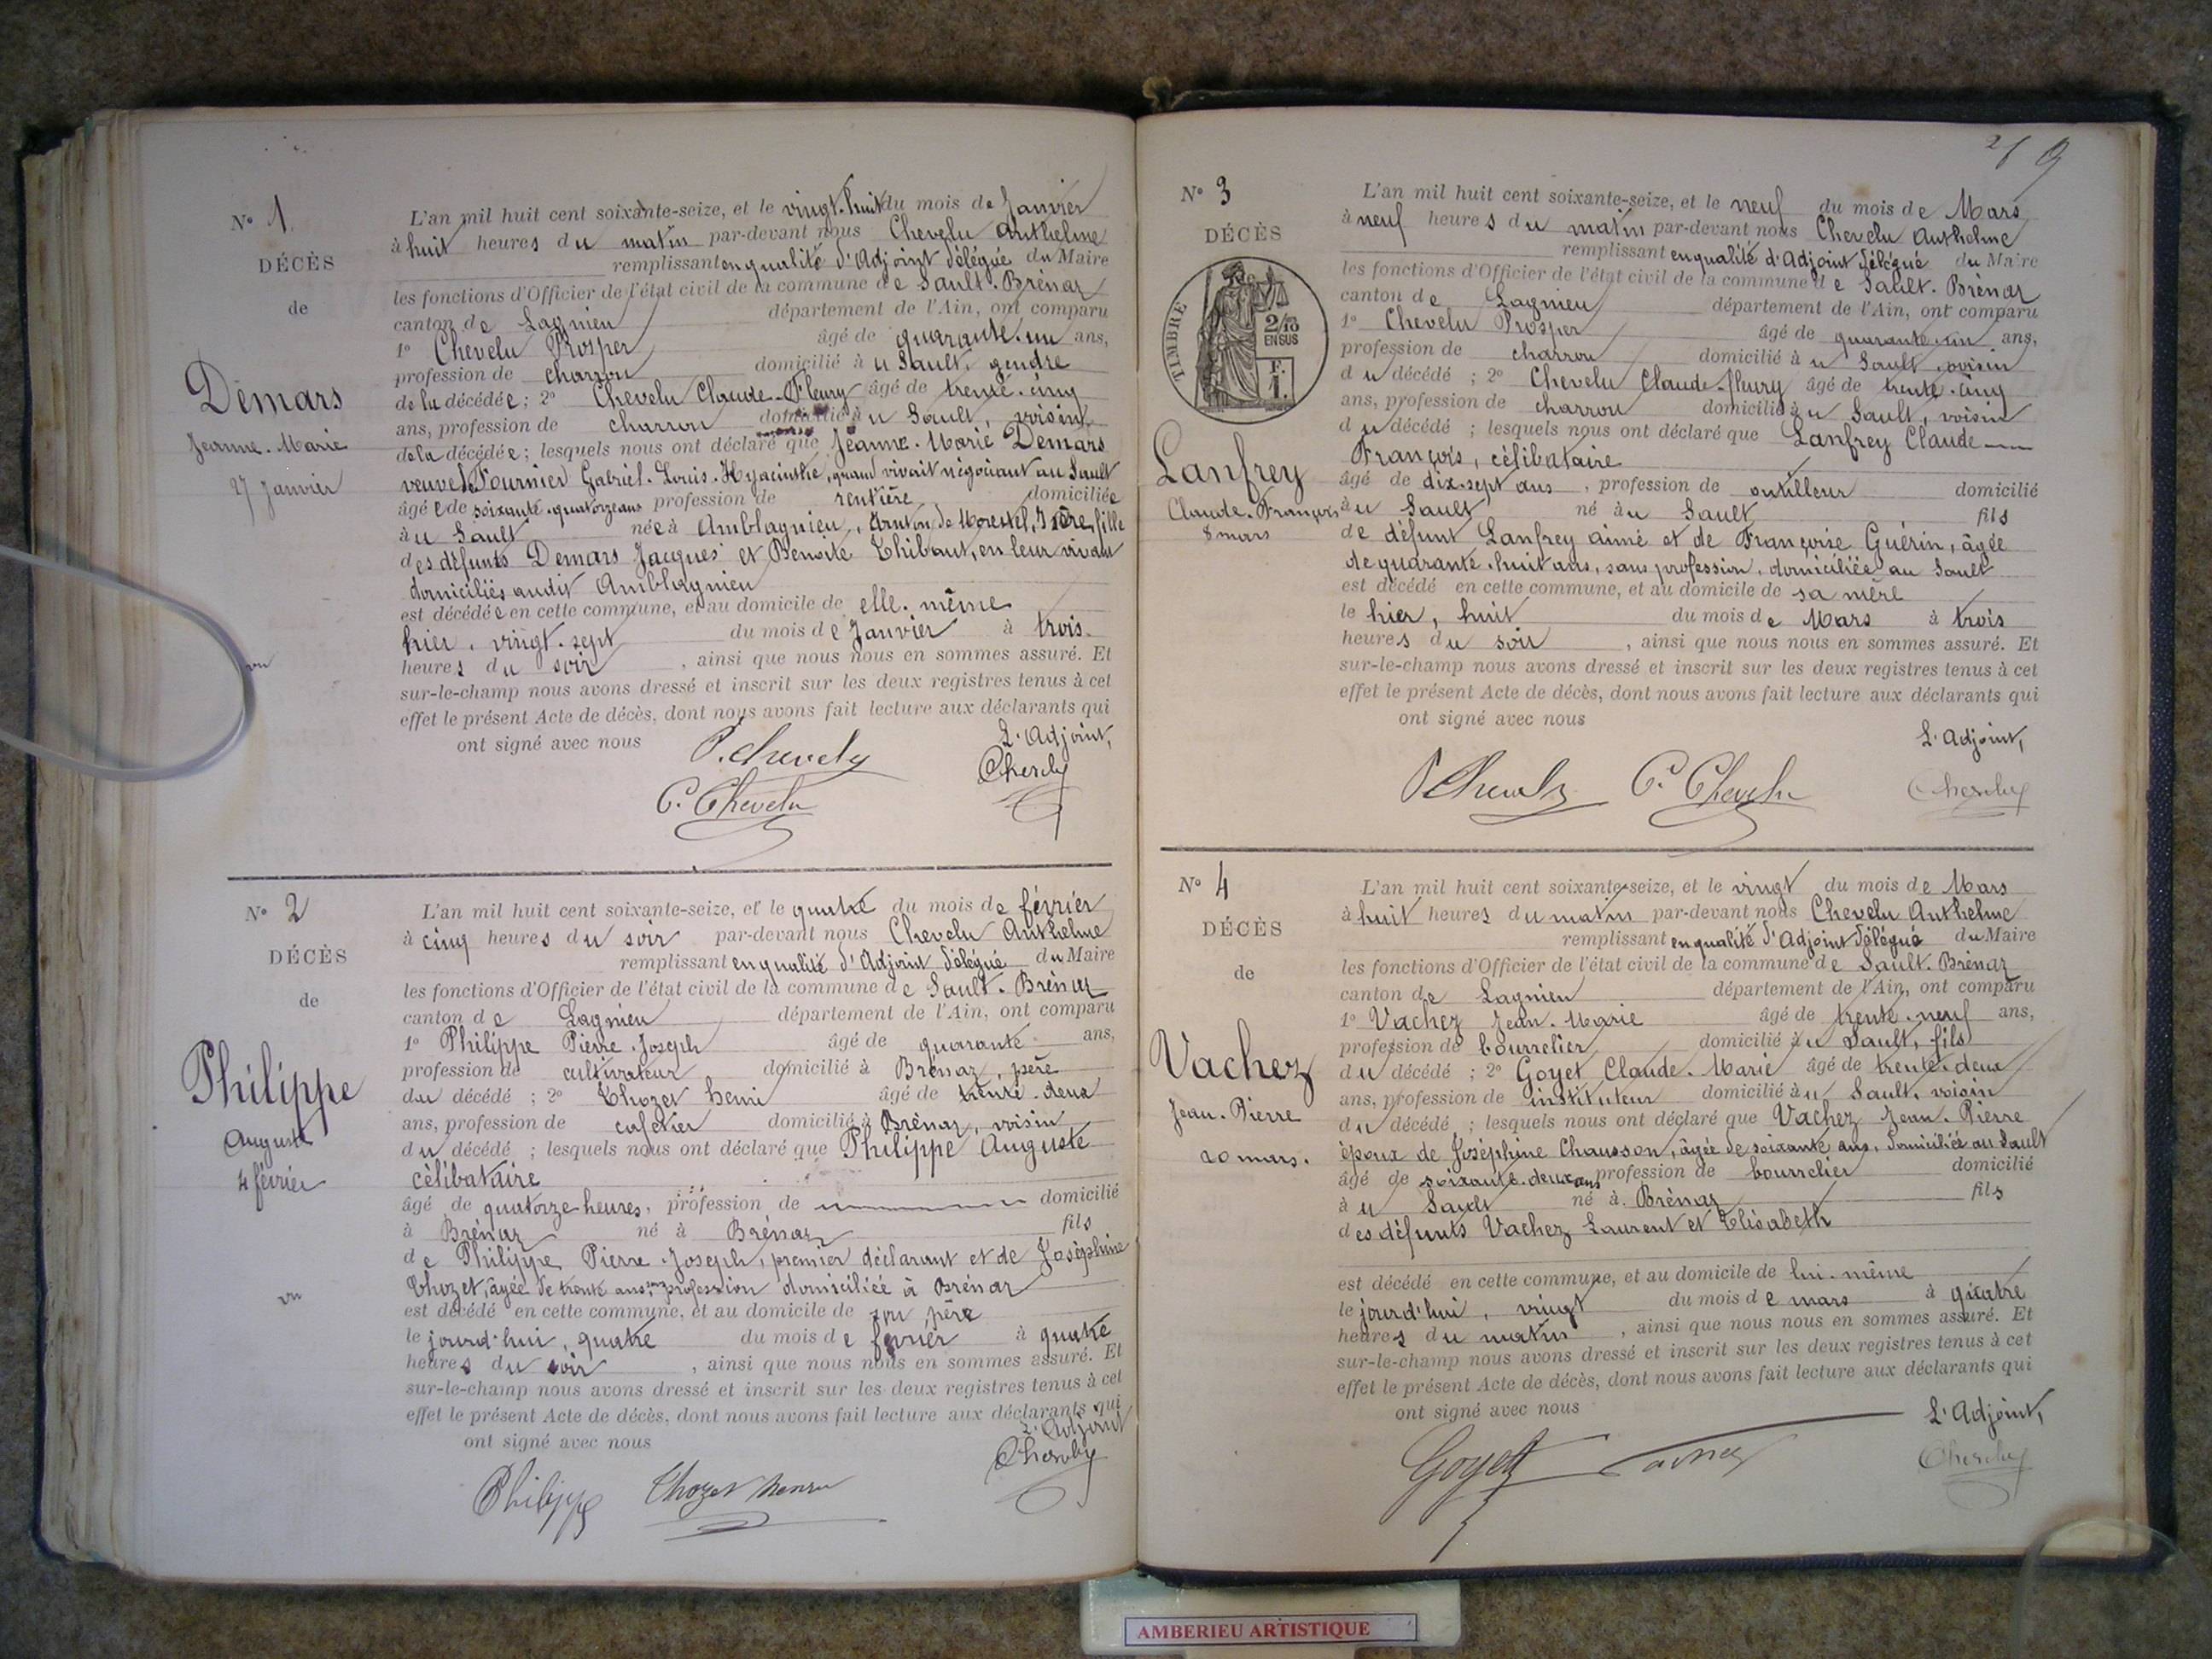 N° 1
DÉCÈS
de
Demars
Jeanne-Marie
27 Janvier
vu
L'an mil huit cent soixante-seize, et le vingt-huit du mois de Janvier
à huit heures du matin par-devant nous Chevelu Anthelme
remplissant en qualité d'Adjoint délégué du Maire
les fonctions d'Officier de l'état civil de la commune de Sault-Brénaz
canton de Lagnieu département de l'Ain, ont comparu
1° Chevelu Prosper âgé de quarante-un ans,
profession de charron domicilié à u Sault, gendre
de la décédée ; 2° Chevelu Claude-Fleury âgé de trente-cinq
ans, profession de charron domicilié à u Sault, voisin
de la décédée ; lesquels nous ont déclaré que Jeanne-Marie Demars
veuve de Fournier Gabriel-Louis-Hyacinthe, quand vivait négociant au Sault
âgée de soixante-quatorze ans profession de rentière domiciliée
à u Sault née à Amblagnieu, canton de Morestel, Isère, fille
des défunts Demars Jacques et Benoite Thibaut, en leur vivant
domiciliés audit Amblagnieu
est décédée en cette commune, et au domicile de elle-même
hier, vingt-sept du mois de Janvier à trois
heures du soir , ainsi que nous nous en sommes assuré. Et
sur-le-champ nous avons dressé et inscrit sur les deux registres tenus à cet
effet le présent Acte de décès, dont nous avons fait lecture aux déclarants qui
ont signé avec nous
L'Adjoint,
P. Chevelu
C. Chevelu
N° 2
DÉCÈS
de
Philippe
Auguste
4 février
vu
L'an mil huit cent soixante-seize, et le quatre du mois de février
à cinq heures du soir par-devant nous Chevelu Anthelme
remplissant en qualité d'Adjoint délégué du Maire
les fonctions d'Officier de l'état civil de la commune de Sault-Brénaz
canton de Lagnieu département de l'Ain, ont comparu
1° Philippe Pierre-Joseph âgé de quarante ans,
profession de cultivateur domicilié à Brénaz, père
du décédé ; 2° Thozet henri âgé de trente-deux
ans, profession de cafetier domicilié à Brénaz, voisin
du décédé ; lesquels nous ont déclaré que Philippe Auguste
célibataire
âgé de quatorze heures, profession de domicilié
à Brénaz né à Brénaz fils
de Philippe Pierre-Joseph, premier déclarant et de Joséphine
Thozet, âgée de trente ans, sans profession domiciliée à Brénaz
est décédé en cette commune, et au domicile de son père
le jourd'hui, quatre du mois de février à quatre
heures du soir , ainsi que nous nous en sommes assuré. Et
sur-le-champ nous avons dressé et inscrit sur les deux registres tenus à cet
effet le présent Acte de décès, dont nous avons fait lecture aux déclarants qui
ont signé avec nous
L'Adjoint
Philippe Thozet henri
N° 3
DÉCÈS
TIMBRE
2/10
EN SUS
F.
1.
Lanfrey
Claude-François
8 mars
L'an mil huit cent soixante-seize, et le neuf du mois de Mars
à neuf heures du matin par-devant nous Chevelu Anthelme
remplissant en qualité d'Adjoint délégué du Maire
les fonctions d'Officier de l'état civil de la commune de Sault-Brénaz
canton de Lagnieu département de l'Ain, ont comparu
1° Chevelu Prosper âgé de quarante-un ans,
profession de charron domicilié à u Sault, voisin
du décédé ; 2° Chevelu Claude-fleury âgé de trente-cinq
ans, profession de charron domicilié à u Sault, voisin
du décédé ; lesquels nous ont déclaré que Lanfrey Claude
François, célibataire
âgé de dix-sept ans , profession de outilleur domicilié
à u Sault né à u Sault fils
de défunt Lanfrey aimé et de Françoise Guérin, âgée
de quarante-huit ans, sans profession, domiciliée au Sault
est décédé en cette commune, et au domicile de sa mère
le hier, huit du mois de Mars à trois
heures du soir , ainsi que nous nous en sommes assuré. Et
sur-le-champ nous avons dressé et inscrit sur les deux registres tenus à cet
effet le présent Acte de décès, dont nous avons fait lecture aux déclarants qui
ont signé avec nous
L'Adjoint,
P Chevelu C. Chevelu
N° 4
DÉCÈS
de
Vachez
Jean-Pierre
20 mars.
L'an mil huit cent soixante-seize, et le vingt du mois de Mars
à huit heures du matin par-devant nous Chevelu Anthelme
remplissant en qualité d'Adjoint délégué du Maire
les fonctions d'Officier de l'état civil de la commune de Sault-Brénaz
canton de Lagnieu département de l'Ain, ont comparu
1° Vachez Jean-Marie âgé de trente-neuf ans,
profession de bourrelier domicilié à u Sault, fils
du décédé ; 2° Goyet Claude-Marie âgé de trente-deux
ans, profession de instituteur domicilié à u Sault, voisin
du décédé ; lesquels nous ont déclaré que Vachez Jean-Pierre
époux de Joséphine Chausson, âgée de soixante ans, domiciliée au Sault
âgé de soixante-deux ans profession de bourrelier domicilié
à u Sault né à Brénaz fils
des défunts Vachez Laurent et Elisabeth
est décédé en cette commune, et au domicile de lui-même
le jourd'hui, vingt du mois de mars à quatre
heures du matin , ainsi que nous nous en sommes assuré. Et
sur-le-champ nous avons dressé et inscrit sur les deux registres tenus à cet
effet le présent Acte de décès, dont nous avons fait lecture aux déclarants qui
ont signé avec nous
L'Adjoint,
Goyet
AMBERIEU ARTISTIQUE